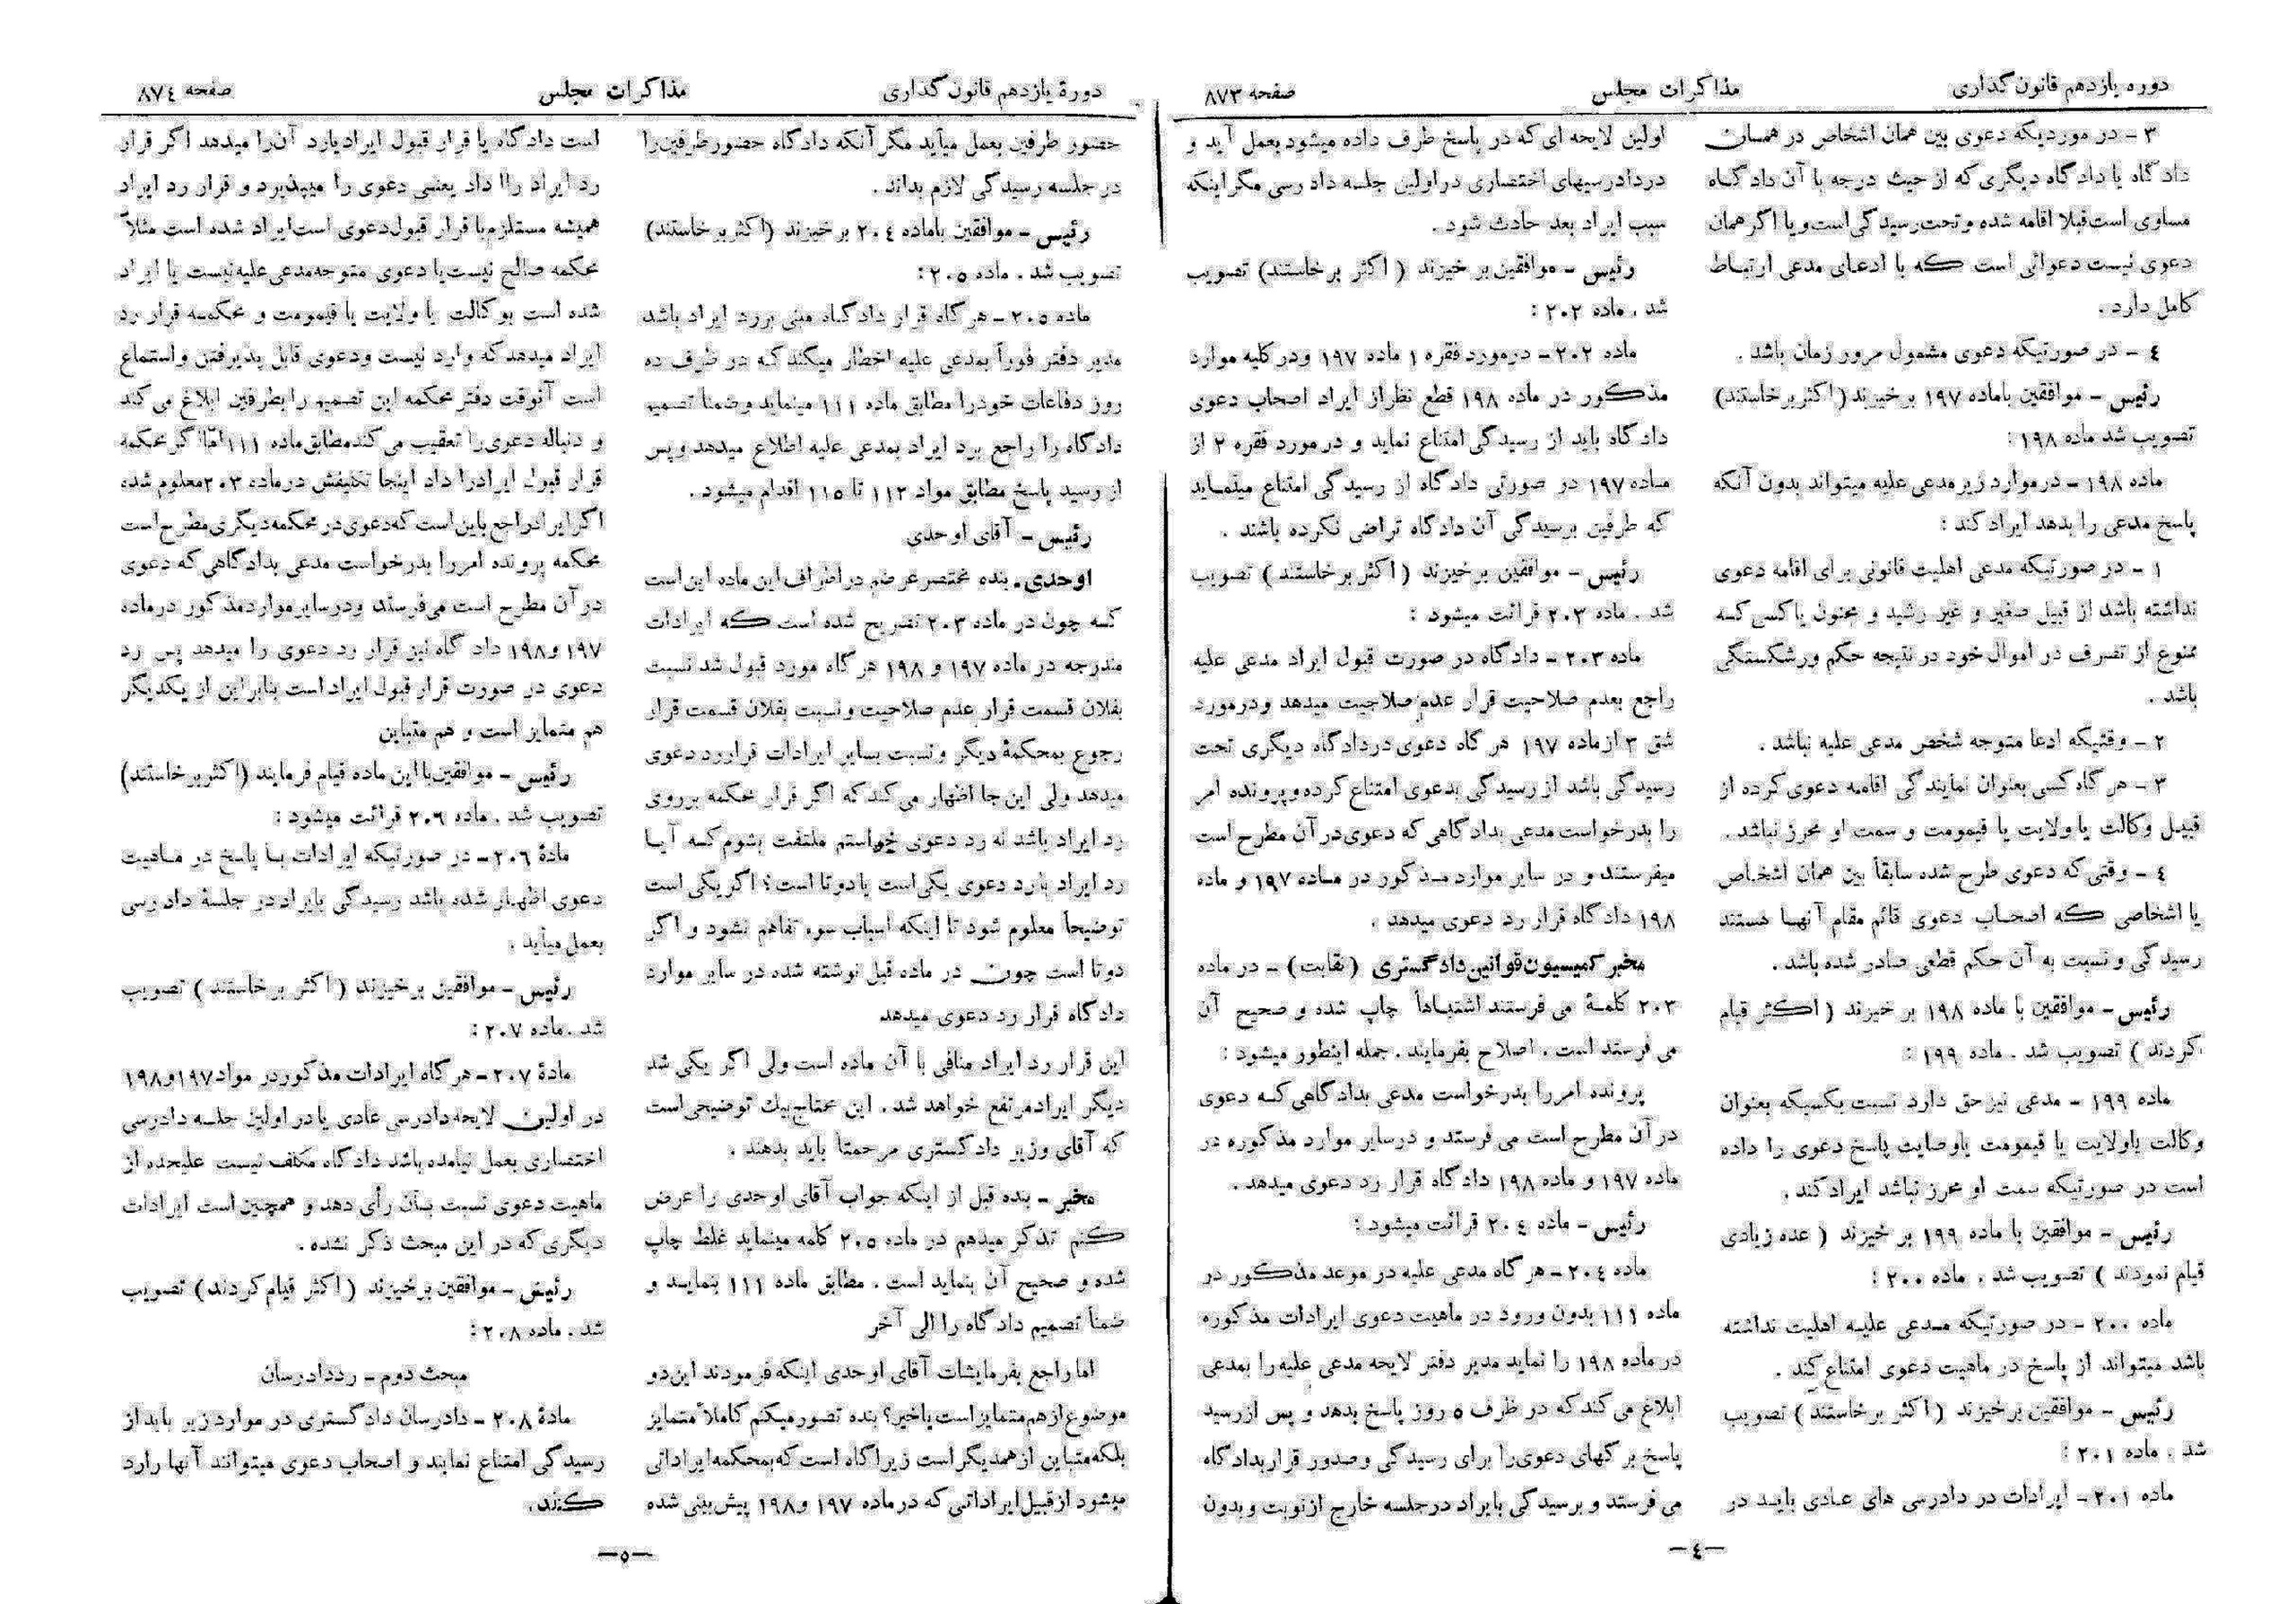 دوره یازدهم قانون‌گذاری
مذاکرات مجلس
صفحه ۸۷۳
۳ - در موردیکه دعوی بین همان اشخاص در همان
دادگاه یا دادگاه دیگری که از حیث درجه با آن دادگاه
مساوی است قبلا اقامه شده و تحت رسیدگی است و یا اگر همان
دعوی نیست دعوائی است که با ادعای مدعی ارتباط
کامل دارد .
۴ - در صورتیکه دعوی مشمول مرور زمان باشد .
رئیس - موافقین باماده ۱۹۷ برخیزند (اکثر برخاستند)
تصویب شد ماده ۱۹۸ :
ماده ۱۹۸ - در موارد زیر مدعی علیه میتواند بدون آنکه
پاسخ مدعی را بدهد ایراد کند :
۱ - در صورتیکه مدعی اهلیت قانونی برای اقامه دعوی
نداشته باشد از قبیل صغیر و غیر رشید و مجنون یا کسی که
ممنوع از تصرف در اموال خود در نتیجه حکم ورشکستگی
باشد .
۲ - وقتیکه ادعا متوجه شخص مدعی علیه نباشد .
۳ - هر گاه کسی بعنوان نمایندگی اقامه دعوی کرده از
قبیل وکالت یا ولایت یا قیمومت و سمت او محرز نباشد .
۴ - وقتی که دعوی طرح شده سابقاً بین همان اشخاص
یا اشخاصی که اصحاب دعوی قائم مقام آنها هستند
رسیدگی و نسبت به آن حکم قطعی صادر شده باشد .
رئیس - موافقین با ماده ۱۹۸ بر خیزند ( اکثر قیام
کردند ) تصویب شد . ماده ۱۹۹ :
ماده ۱۹۹ - مدعی نیز حق دارد نسبت بکسیکه بعنوان
وکالت یا ولایت یا قیمومت یا وصایت پاسخ دعوی را داده
است در صورتیکه سمت او محرز نباشد ایراد کند .
رئیس - موافقین با ماده ۱۹۹ بر خیزند ( عده زیادی
قیام نمودند ) تصویب شد . ماده ۲۰۰ :
ماده ۲۰۰ - در صورتیکه مدعی علیه اهلیت نداشته
باشد میتواند از پاسخ در ماهیت دعوی امتناع کند .
رئیس - موافقین برخیزند ( اکثر برخاستند ) تصویب
شد . ماده ۲۰۱ :
ماده ۲۰۱ - ایرادات در دادرسی های عادی باید در
اولین لایحه ای که در پاسخ طرف داده میشود بعمل آید و
در دادرسیهای اختصاری در اولین جلسه دادرسی مگر اینکه
سبب ایراد بعد حادث شود .
رئیس - موافقین بر خیزند ( اکثر بر خاستند) تصویب
شد . ماده ۲۰۲ :
ماده ۲۰۲ - درمورد فقره ۱ ماده ۱۹۷ ودر کلیه موارد
مذکور در ماده ۱۹۸ قطع نظر از ایراد اصحاب دعوی
دادگاه باید از رسیدگی امتناع نماید و در مورد فقره ۲ از
ماده ۱۹۷ در صورتی دادگاه از رسیدگی امتناع مینماید
که طرفین برسیدگی آن دادگاه تراضی نکرده باشند .
رئیس - موافقین بر خیزند ( اکثر برخاستند ) تصویب
شد . ماده ۲۰۳ قرائت میشود :
ماده ۲۰۳ - دادگاه در صورت قبول ایراد مدعی علیه
راجع بعدم صلاحیت قرار عدم صلاحیت میدهد ودرمورد
شق ۳ ازماده ۱۹۷ هر گاه دعوی در دادگاه دیگری تحت
رسیدگی باشد از رسیدگی بدعوی امتناع کرده و پرونده امر
را بدرخواست مدعی بدادگاهی که دعوی در آن مطرح است
میفرستند و در سایر موارد مذکور در ماده ۱۹۷ و ماده
۱۹۸ دادگاه قرار رد دعوی میدهد .
مخبر کمیسیون قوانین دادگستری (نقابت) - در ماده
۲۰۳ کلمهٔ می فرستند اشتباهاً چاپ شده و صحیح آن
می فرستد است . اصلاح بفرمایند . جمله اینطور میشود :
پرونده امر را بدرخواست مدعی بدادگاهی که دعوی
در آن مطرح است می فرستد و درسایر موارد مذکوره در
ماده ۱۹۷ و ماده ۱۹۸ دادگاه قرار رد دعوی میدهد .
رئیس - ماده ۲۰۴ قرائت میشود :
ماده ۲۰۴ - هر گاه مدعی علیه در موعد مذکور در
ماده ۱۱۱ بدون ورود در ماهیت دعوی ایرادات مذکوره
در ماده ۱۹۸ را نماید مدیر دفتر لایحه مدعی علیه را بمدعی
ابلاغ می کند که در ظرف ۵ روز پاسخ بدهد و پس از رسید
پاسخ برگهای دعوی را برای رسیدگی و صدور قرار بدادگاه
می فرستد و برسیدگی بایراد درجلسه خارج از نوبت و بدون
—۴—
دورهٔ یازدهم قانون گذاری
مذاکرات مجلس
صفحه ۸۷۴
حضور طرفین بعمل میآید مگر آنکه دادگاه حضور طرفین را
در جلسه رسیدگی لازم بداند .
رئیس - موافقین باماده ۲۰۴ برخیزند (اکثر برخاستند)
تصویب شد . ماده ۲۰۵ :
ماده ۲۰۵ - هر گاه قرار دادگاه مبنی بررد ایراد باشد
مدیر دفتر فوراً بمدعی علیه اخطار میکند که در ظرف ده
روز دفاعات خود را مطابق ماده ۱۱۱ مینماید و ضمناً تصمیم
دادگاه را راجع برد ایراد بمدعی علیه اطلاع میدهد و پس
از رسید پاسخ مطابق مواد ۱۱۲ تا ۱۱۵ اقدام میشود .
رئیس - آقای اوحدی
اوحدی . بنده مختصر عرضم در اطراف این ماده این است
که چون در ماده ۲۰۳ تصریح شده است که ایرادات
مندرجه در ماده ۱۹۷ و ۱۹۸ هر گاه مورد قبول شد نسبت
بفلان قسمت قرار عدم صلاحیت و نسبت بفلان قسمت قرار
رجوع بمحکمهٔ دیگر و نسبت بسایر ایرادات قرار رد دعوی
میدهد ولی این جا اظهار می کند که اگر قرار محکمه بر روی
رد ایراد باشد نه رد دعوی خواستم ملتفت بشوم که آیا
رد ایراد با رد دعوی یکی است یا دوتا است ؟ اگر یکی است
توضیحاً معلوم شود تا اینکه اسباب سوء تفاهم نشود و اگر
دوتا است چون در ماده قبل نوشته شده در سایر موارد
دادگاه قرار رد دعوی میدهد
این قرار رد ایراد منافی با آن ماده است ولی اگر یکی شد
دیگر ایراد مرتفع خواهد شد . این محتاج بیك توضیحی است
که آقای وزیر دادگستری مرحمتاً باید بدهند .
مخبر - بنده قبل از اینکه جواب آقای اوحدی را عرض
کنم تذکر میدهم در ماده ۲۰۵ کلمه مینماید غلط چاپ
شده و صحیح آن بنماید است . مطابق ماده ۱۱۱ بنماید و
ضمناً تصمیم دادگاه را الی آخر
اما راجع بفرمایشات آقای اوحدی اینکه فرمودند این دو
موضوع از هم متمایز است یا خیر؟ بنده تصور میکنم کاملاً متمایز
بلکه متباین از همدیگر است زیرا گاه است که بمحکمه ایراداتی
میشود از قبیل ایراداتی که در ماده ۱۹۷ و ۱۹۸ پیش بینی شده
است دادگاه یا قرار قبول ایراد یا رد آن را میدهد اگر قرار
رد ایراد را داد یعنی دعوی را میپذیرد و قرار رد ایراد
همیشه مستلزم با قرار قبول دعوی است ایراد شده است مثلاً
محکمه صالح نیست یا دعوی متوجه مدعی علیه نیست یا ایراد
شده است بوکالت یا ولایت یا قیمومت و محکمه قرار رد
ایراد میدهد که وارد نیست و دعوی قابل پذیرفتن و استماع
است آنوقت دفتر محکمه این تصمیم را بطرفین ابلاغ می کند
و دنباله دعوی را تعقیب می کند مطابق ماده ۱۱۱ امّا اگر محکمه
قرار قبول ایراد را داد اینجا تکلیفش در ماده ۲۰۳ معلوم شده
اگر ایراد راجع باین است که دعوی در محکمه دیگری مطرح است
محکمه پرونده امر را بدرخواست مدعی بدادگاهی که دعوی
در آن مطرح است می فرستد و در سایر موارد مذکور در ماده
۱۹۷ و ۱۹۸ دادگاه نیز قرار رد دعوی را میدهد پس رد
دعوی در صورت قرار قبول ایراد است بنابر این از یکدیگر
هم متمایز است و هم متباین
رئیس - موافقین با این ماده قیام فرمایند (اکثر برخاستند)
تصویب شد . ماده ۲۰۶ قرائت میشود :
مادهٔ ۲۰۶ - در صورتیکه ایرادات با پاسخ در ماهیت
دعوی اظهار شده باشد رسیدگی بایراد در جلسهٔ دادرسی
بعمل میآید .
رئیس - موافقین برخیزند ( اکثر برخاستند ) تصویب
شد . ماده ۲۰۷ :
مادهٔ ۲۰۷ - هر گاه ایرادات مذکور در مواد ۱۹۷ و ۱۹۸
در اولین لایحه دادرسی عادی یا در اولین جلسه دادرسی
اختصاری بعمل نیامده باشد دادگاه مکلف نیست علیحده از
ماهیت دعوی نسبت بآن رأی دهد و همچنین است ایرادات
دیگری که در این مبحث ذکر نشده .
رئیس - موافقین برخیزند ( اکثر قیام کردند) تصویب
شد . ماده ۲۰۸ :
مبحث دوم - رد دادرسان
مادهٔ ۲۰۸ - دادرسان دادگستری در موارد زیر باید از
رسیدگی امتناع نمایند و اصحاب دعوی میتوانند آنها را رد
کنند .
—۵—